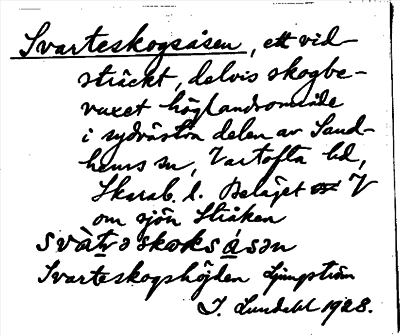 Svarteskogsåsen, ett vid-
sträckt, delvis skogbe-
vuxet höglandsområde
i sydvästra delen av Sand-
hems sn, Vartofta hd,
Skarab. l. Beläget V
om sjön Stråken
svàtəskoksásən
Svarteskogshöjden Ljungström
I. Lundahl 1928.